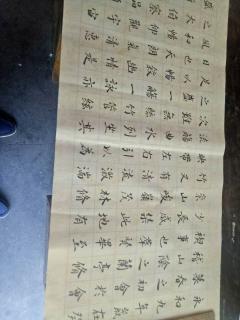 永和九年歲在癸
暮春之初會於會
稽山陰之蘭亭修
禊事也群賢畢至
少長咸集此地有
崇山峻嶺茂林修
竹又有清流激湍
映帶左右引以為
流觴曲水列坐其
次雖無絲竹管絃
之盛一觴一詠亦
足以暢敘幽情是
日也天朗氣清惠
風和暢仰觀宇宙
之大
盛